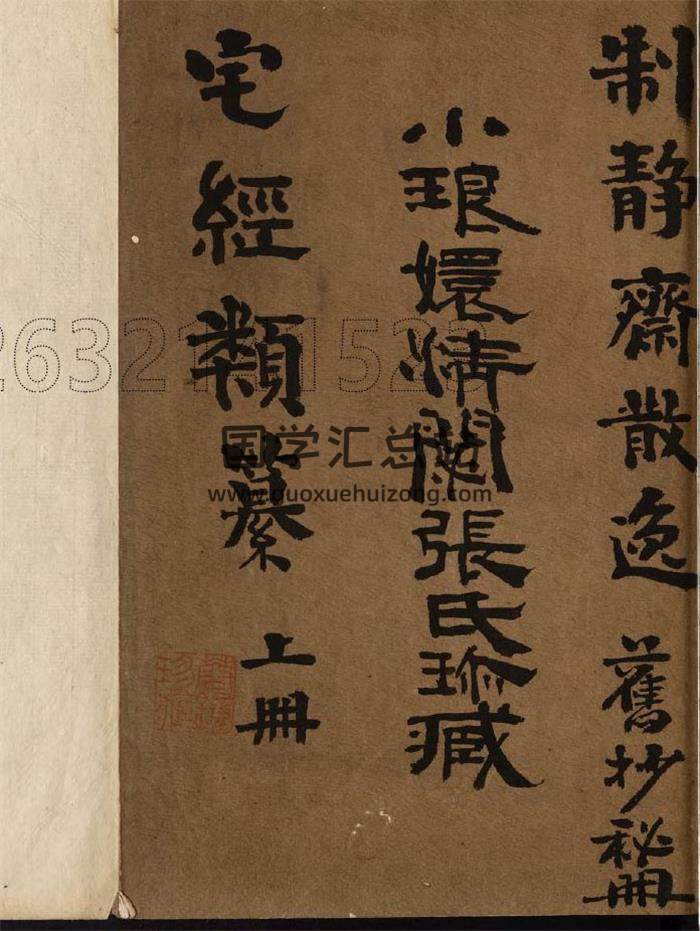 制静齋散逸 舊抄秘冊
小琅嬛清閟張氏珍藏
宅經類纂 上冊
国学汇总
www.guoxuehuizong.com